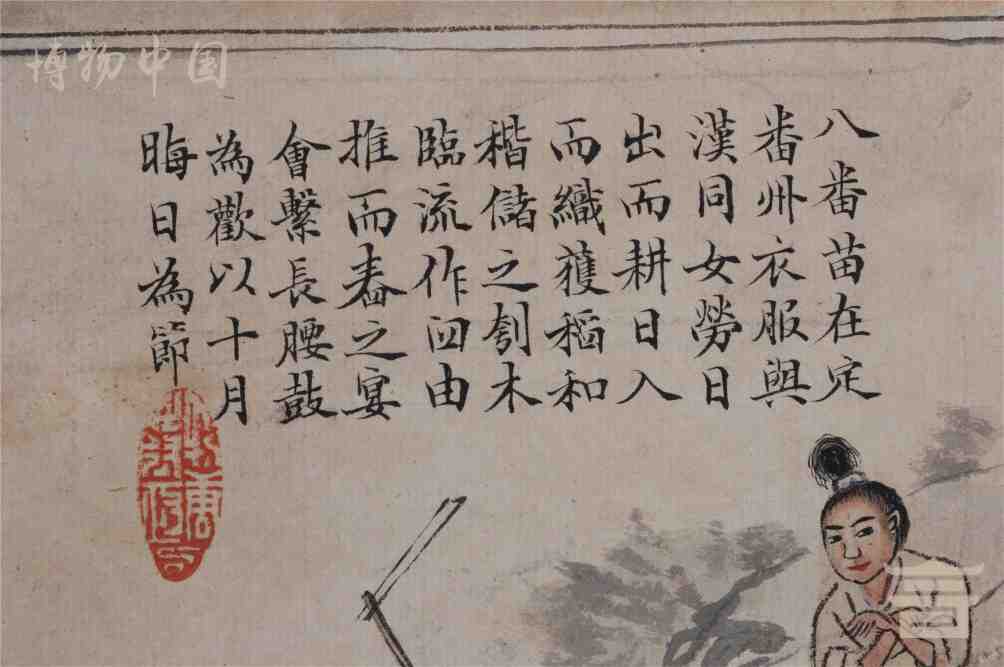 博物中国
八番苗在定
番州衣服與
漢同女勞日
出而耕日入
而織獲稻和
稭儲之刳木
臨流作囬由
推而舂之宴
會繫長腰鼓
為歡以十月
晦日為節